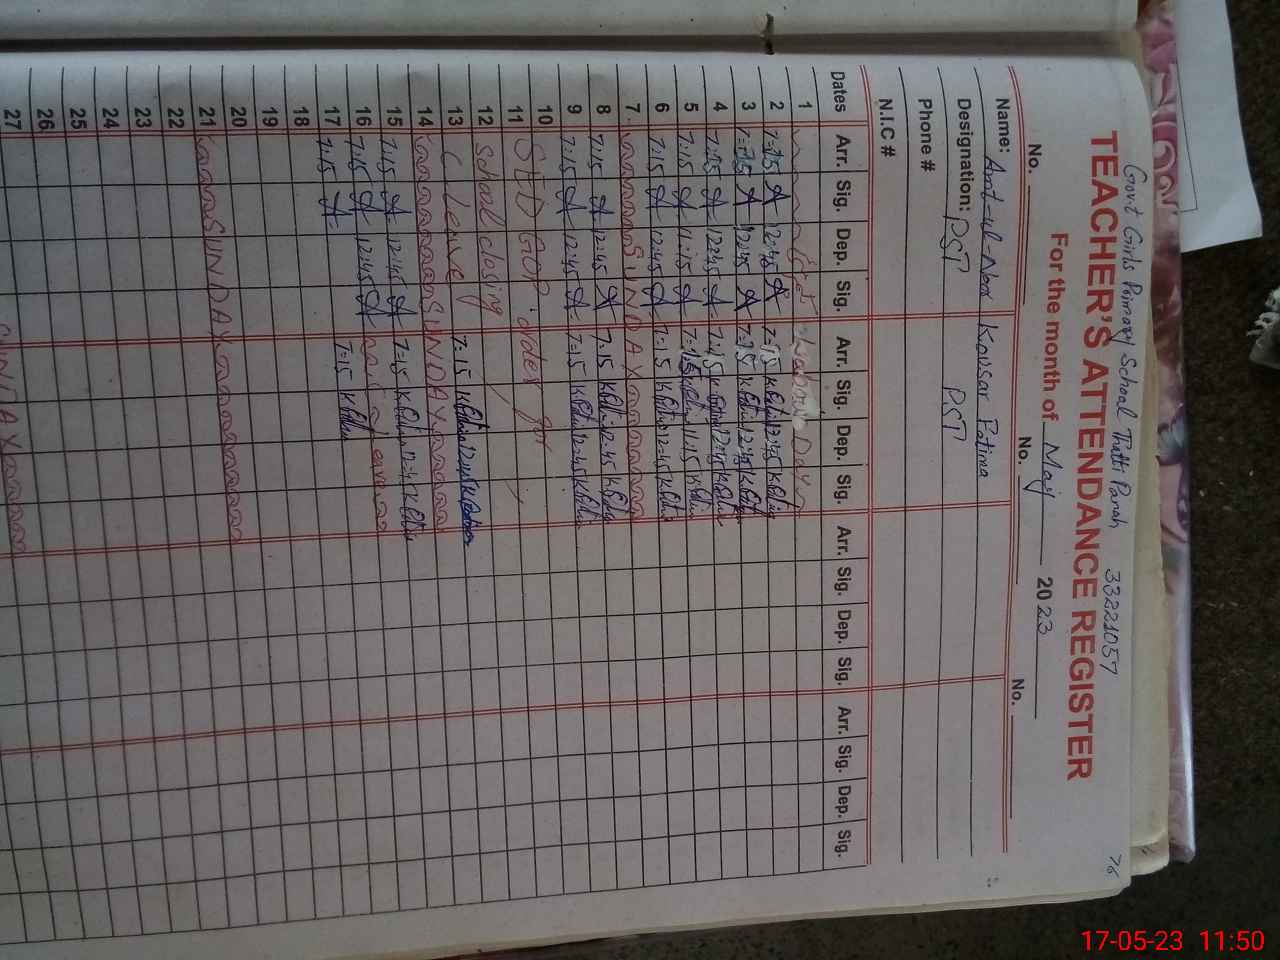 Govt Girls Primary School Thatti Panah 33221057
76
TEACHER'S ATTENDANCE REGISTER
For the month of May 2023
No. No. No.
Name: Amt-ul-Noor Kousar Fatima
Designation: PST PST
Phone #
N.I.C #
Dates Arr. Sig. Dep. Sig. Arr. Sig. Dep. Sig. Arr. Sig. Dep. Sig. Arr. Sig. Dep. Sig.
1 Day
2 7=15 12:45 7=15 K.Fatima 12:45 K.Fatima
3 7=15 12:45 7=15 K.Fatima 12:45 K.Fatima
4 7:15 12:45 7:15 K.Fatima 12:45 K.Fatima
5 7:15 11:15 7=15 K.Fatima 11:15 K.Fatima
6 7:15 12:45 7:15 K.Fatima 12:45 K.Fatima
7 SUNDAY
8 7:15 12:45 7=15 K.Fatima 12:45 K.Fatima
9 7:15 12:45 7=15 K.Fatima 12:45 K.Fatima
10
11 SED GOP order for
12 School closing
13 C Leave 7=15 K.Fatima 12:45 K.Fatima
14 SUNDAY
15 7:15 12:45 7=15 K.Fatima 12:45 K.Fatima
16 7:15 12:45 C leave
17 7:15 7=15 K.Fatima
18
19
20
21 SUNDAY
22
23
24
25
26
27 SUNDAY
17-05-23 11:50